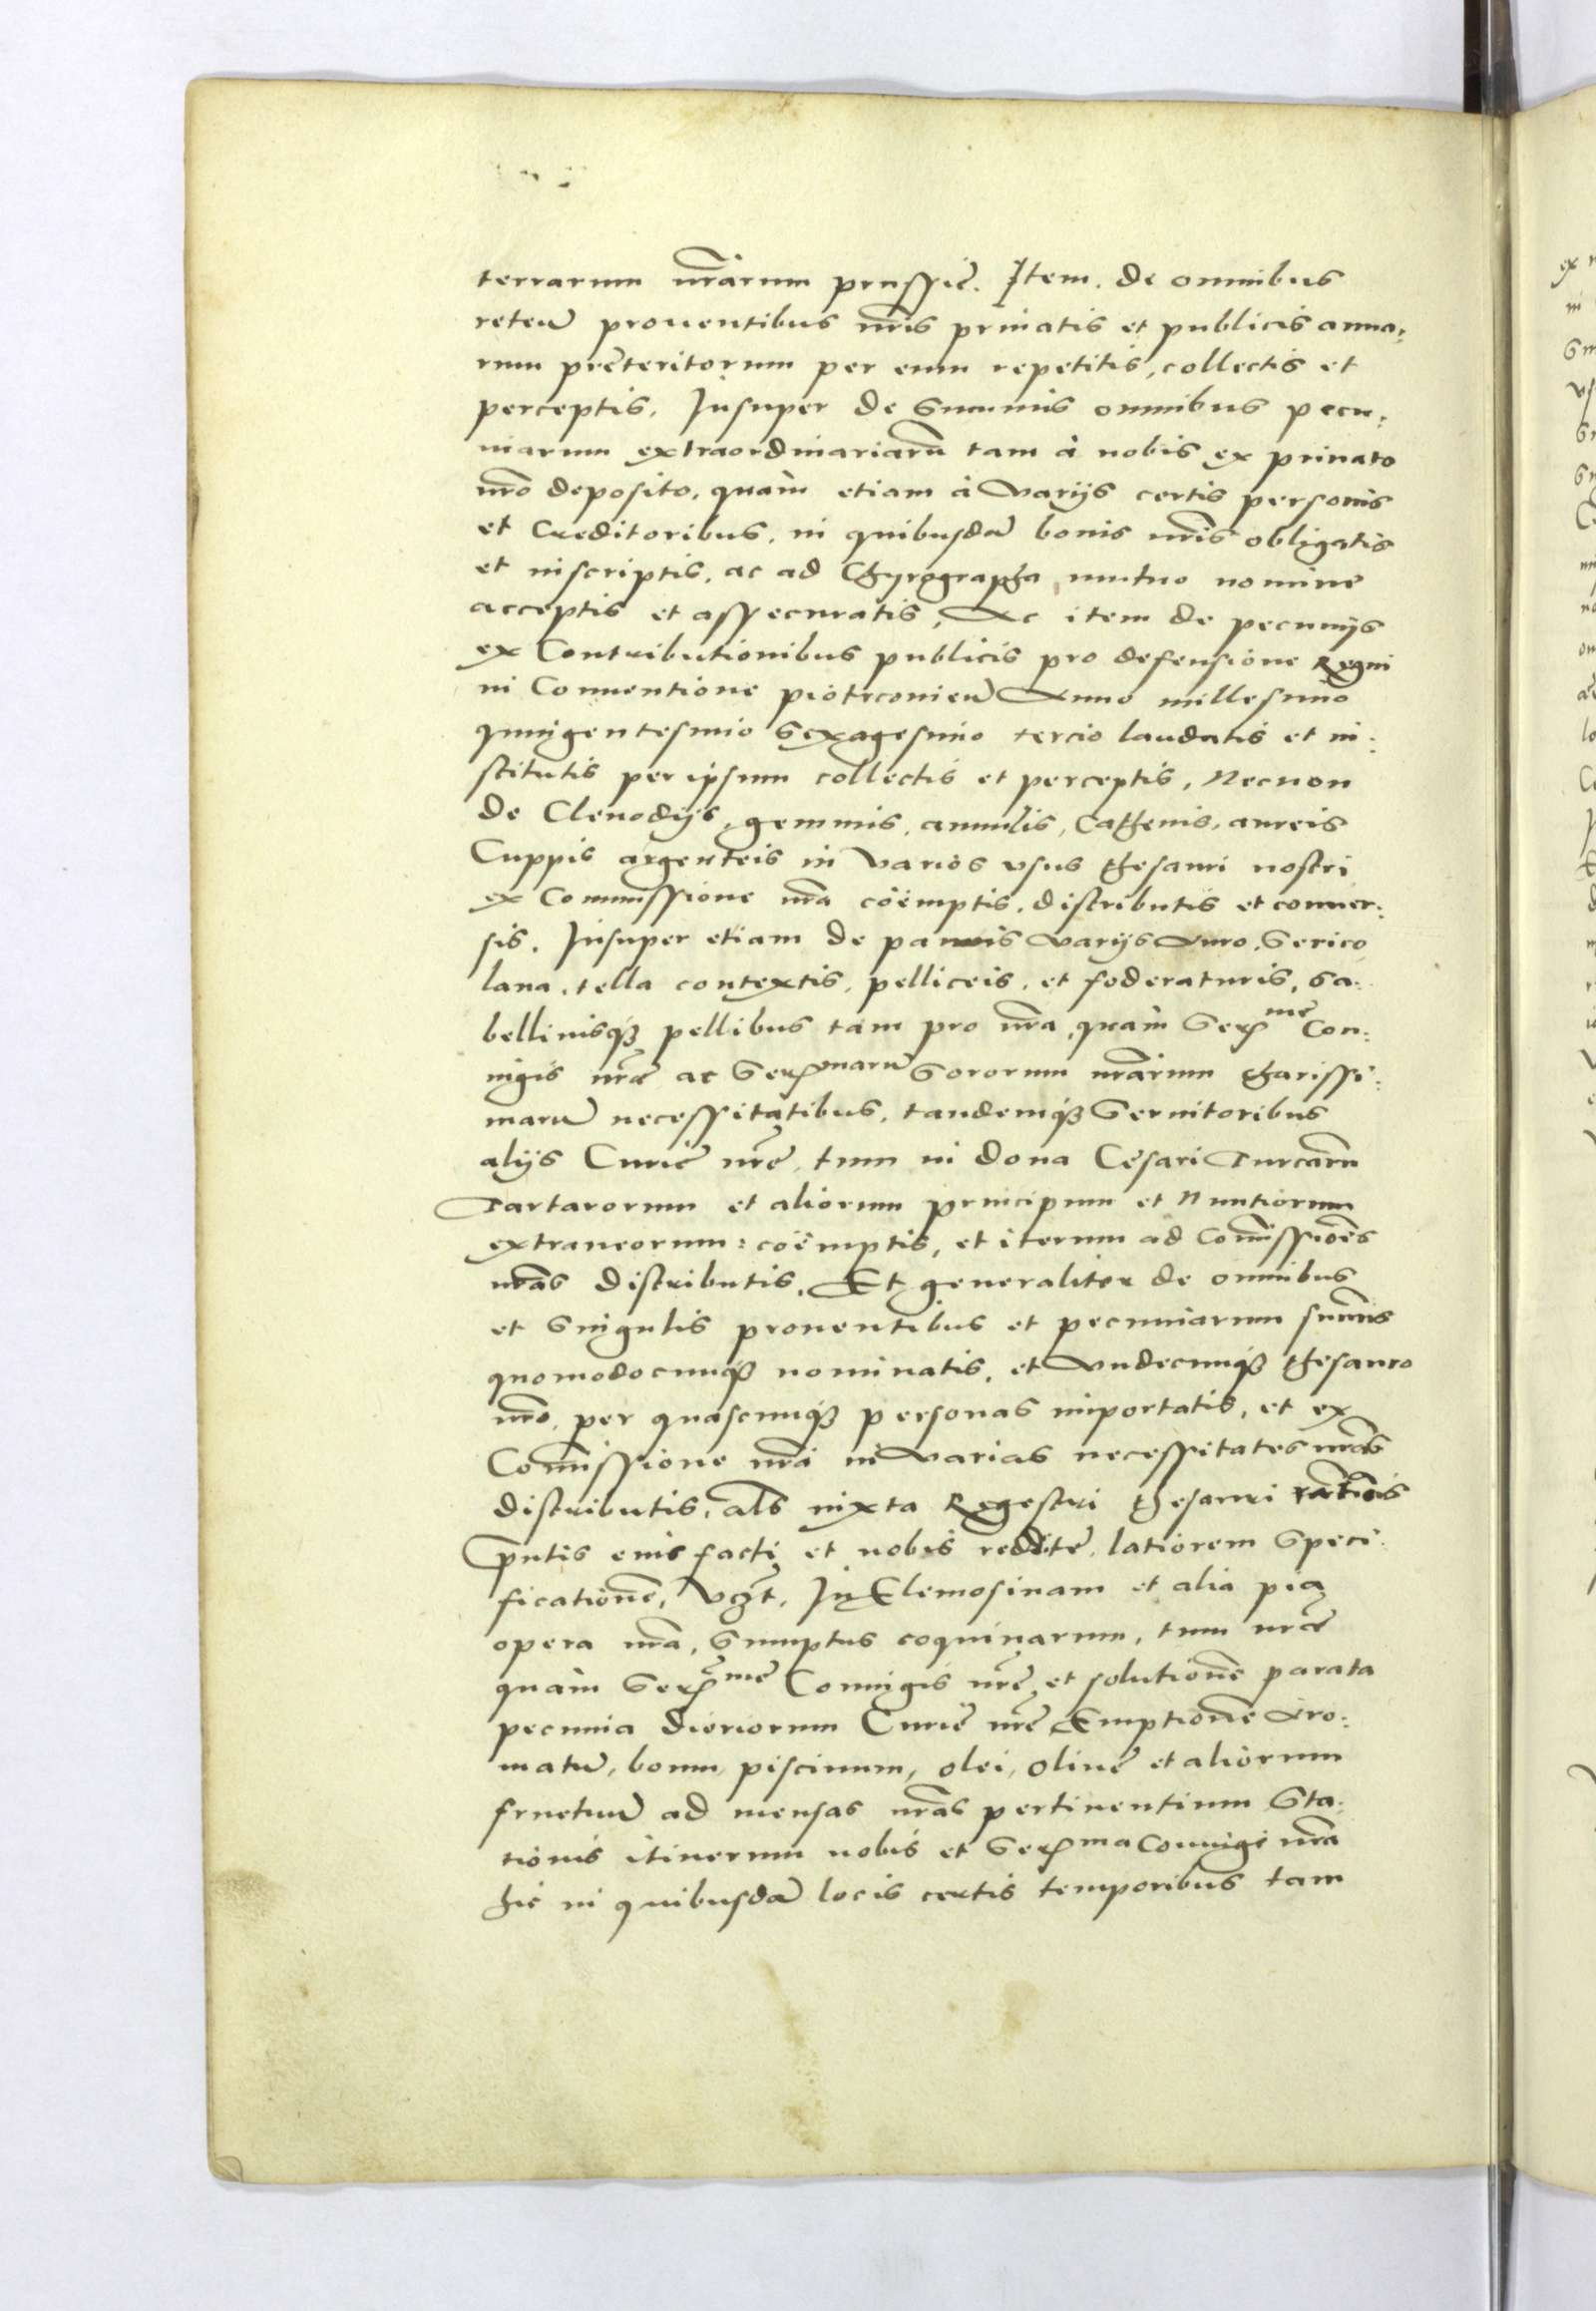 terrarum nr̃arum prussię. Item. de omnibus
retem̃ prouentibus nr̃is priuatis et publicis anno:
rum pręteritorum per eum repetitis, collectis et
perceptis. Insuper de Summis omnibus pecu:
niarum extraordinariarũ tam à nobis ex priuato
nr̃o deposito, quàm etiam à Varijs certis personis
et Creditoribus. in quibusdã bonis nr̃is obligatis
et inscriptis. ac ad Chyrographa mutuo nomine
acceptis et assecuratis, Ac item de pecunijs
ex Contributionibus publicis pro defensione Regni
in Conuentione piotrconieñ Anno millesimo
quingentesimo Sexagesimo tercio laudatis et in:
stitutis per ipsum collectis et perceptis, Necnon
de Clenodijs, gemmis, annulis, Cathenis, aureis
Cuppis argenteis in Varios vsus thesauri nostri
ex Commissione nr̃a coëmptis, distributis et conuer:
sis. Insuper etiam de pannis Varijs Auro, Serico
lana, tella contextis, pelliceis, et foderaturis, Sa:
bellinisq̃ pellibus tam pro nr̃a quàm Serᵐᵉ Con:
iugis nr̃ę ac Serᵐᵃʳũ Sororum nr̃arum charissi:
marũ necessitatibus, tandemq̃ Seruitoribus
alijs Curię nr̃ę, tum in dona Cęsari Turcarũ
Tartarorum et aliorum principum et Nuntiorum
extraneorum: coëmptis, et iterum ad Com̃issiones
nr̃as distributis. Et generaliter de omnibus
et Singulis prouentibus et pecuniarum sum̃is
quomodocunq̃ nominatis, et Vndecunq̃ thesauro
nr̃o, per quascunq̃ personas importatis, et ex
Com̃issione nr̃a in Varias necessitates nr̃as
distributis, al̃s iuxta Regestri thesauri rat̃ionis
p̃ntis eius facti et nobis redditę, latiorem Speci:
ficationẽ, Vz̃t, In Elemosinam et alia pia
opera nr̃a, Sumptus coquinarum, tum nr̃ę
quàm Serᵐᵉ Coniugis nr̃ę, et solutionẽ parata
pecunia dieriorum Curię nr̃ę Emptionẽ Aro:
matũ, boum, piscium, olei, oliuę et aliorum
fructuũ ad mensas nr̃as pertinentium Sta:
tionis itinerum nobis et Serᵐᵃ Coniuge nr̃a
hic in quibusdã locis certis temporibus tam